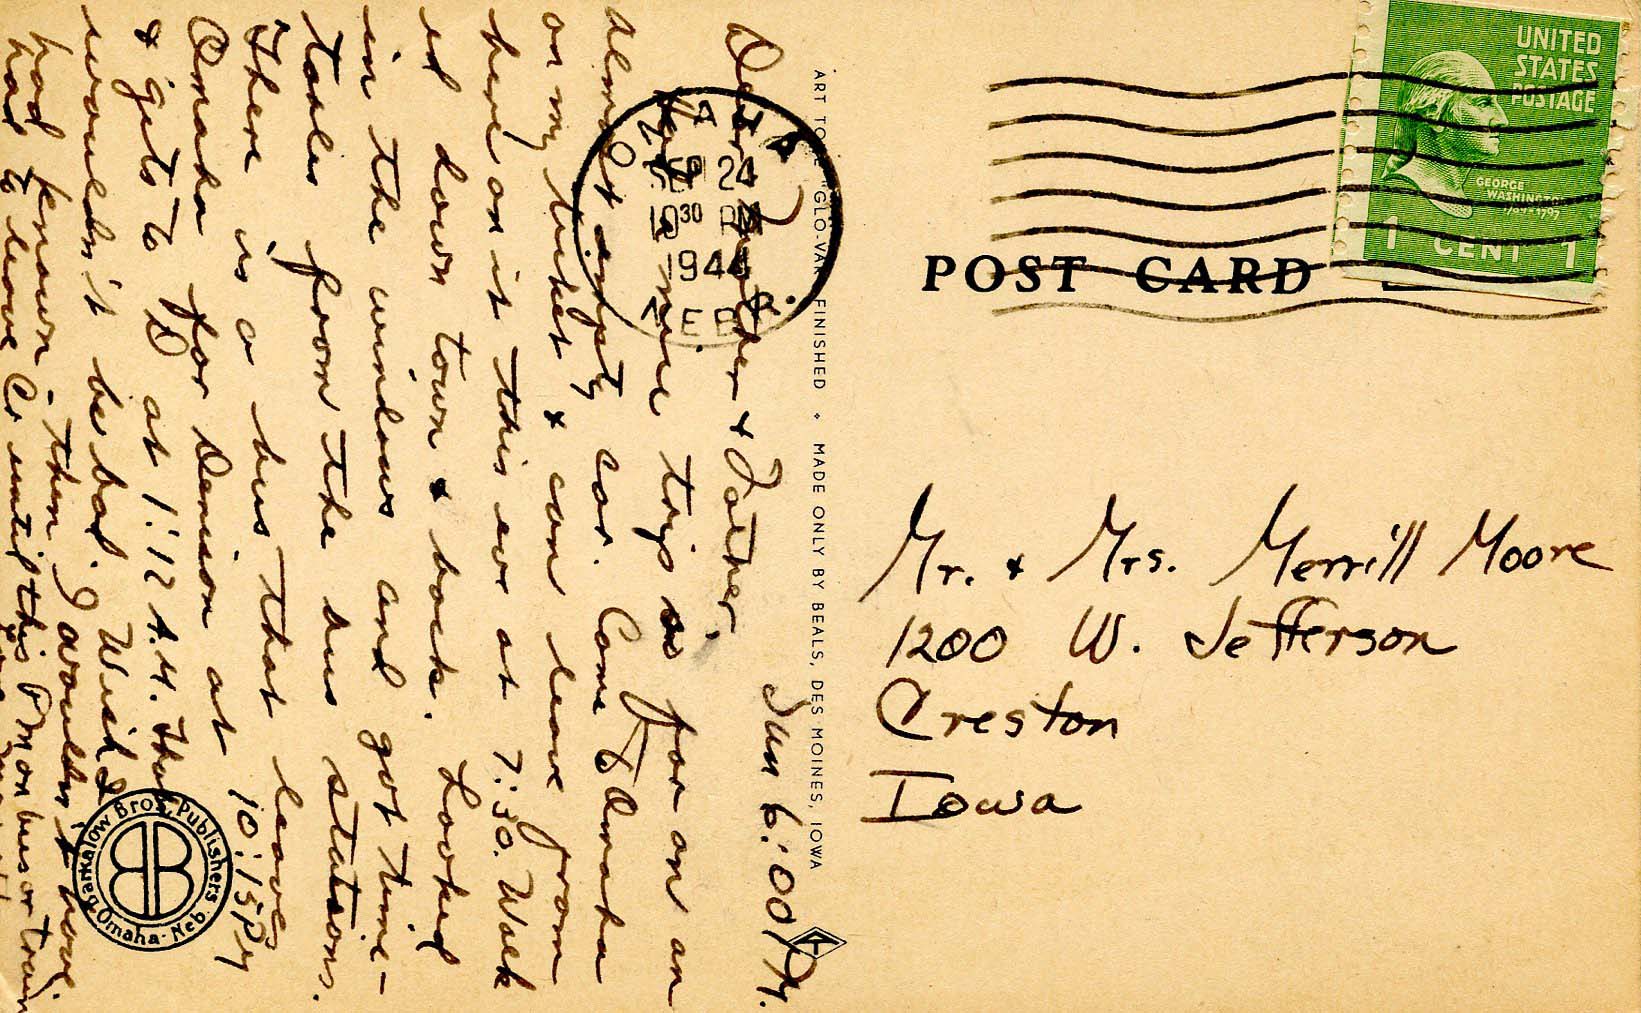 Sun 6:00 P.M.
Dear Mother & Father,
Had a nice trip so far on an
almost empty car. Came to Omaha
on my ticket & can leave from
here on it this eve at 7:30. Walk
ed down town & back. Looked
in the windows and got time-
tables from the bus stations.
There is a bus that leaves
Omaha for Denison at 10:15 PM
& gets to D at 1:12 A.M. that
wouldn't be bad. Wish I
had known then I wouldn't have
had to leave Cr until this P.M on bus or train
OMAHA
SEP 24
10 30 PM
1944
NEBR.
ART TONE "GLO-VAR" FINISHED MADE ONLY BY BEALS, DES MOINES, IOWA
Barkalow Bros. Publishers
Omaha - Neb.
UNITED
STATES
POSTAGE
GEORGE
WASHINGTON
1789-1797
1 CENT 1
POST CARD
Mr. & Mrs. Merrill Moore
1200 W. Jefferson
Creston
Iowa